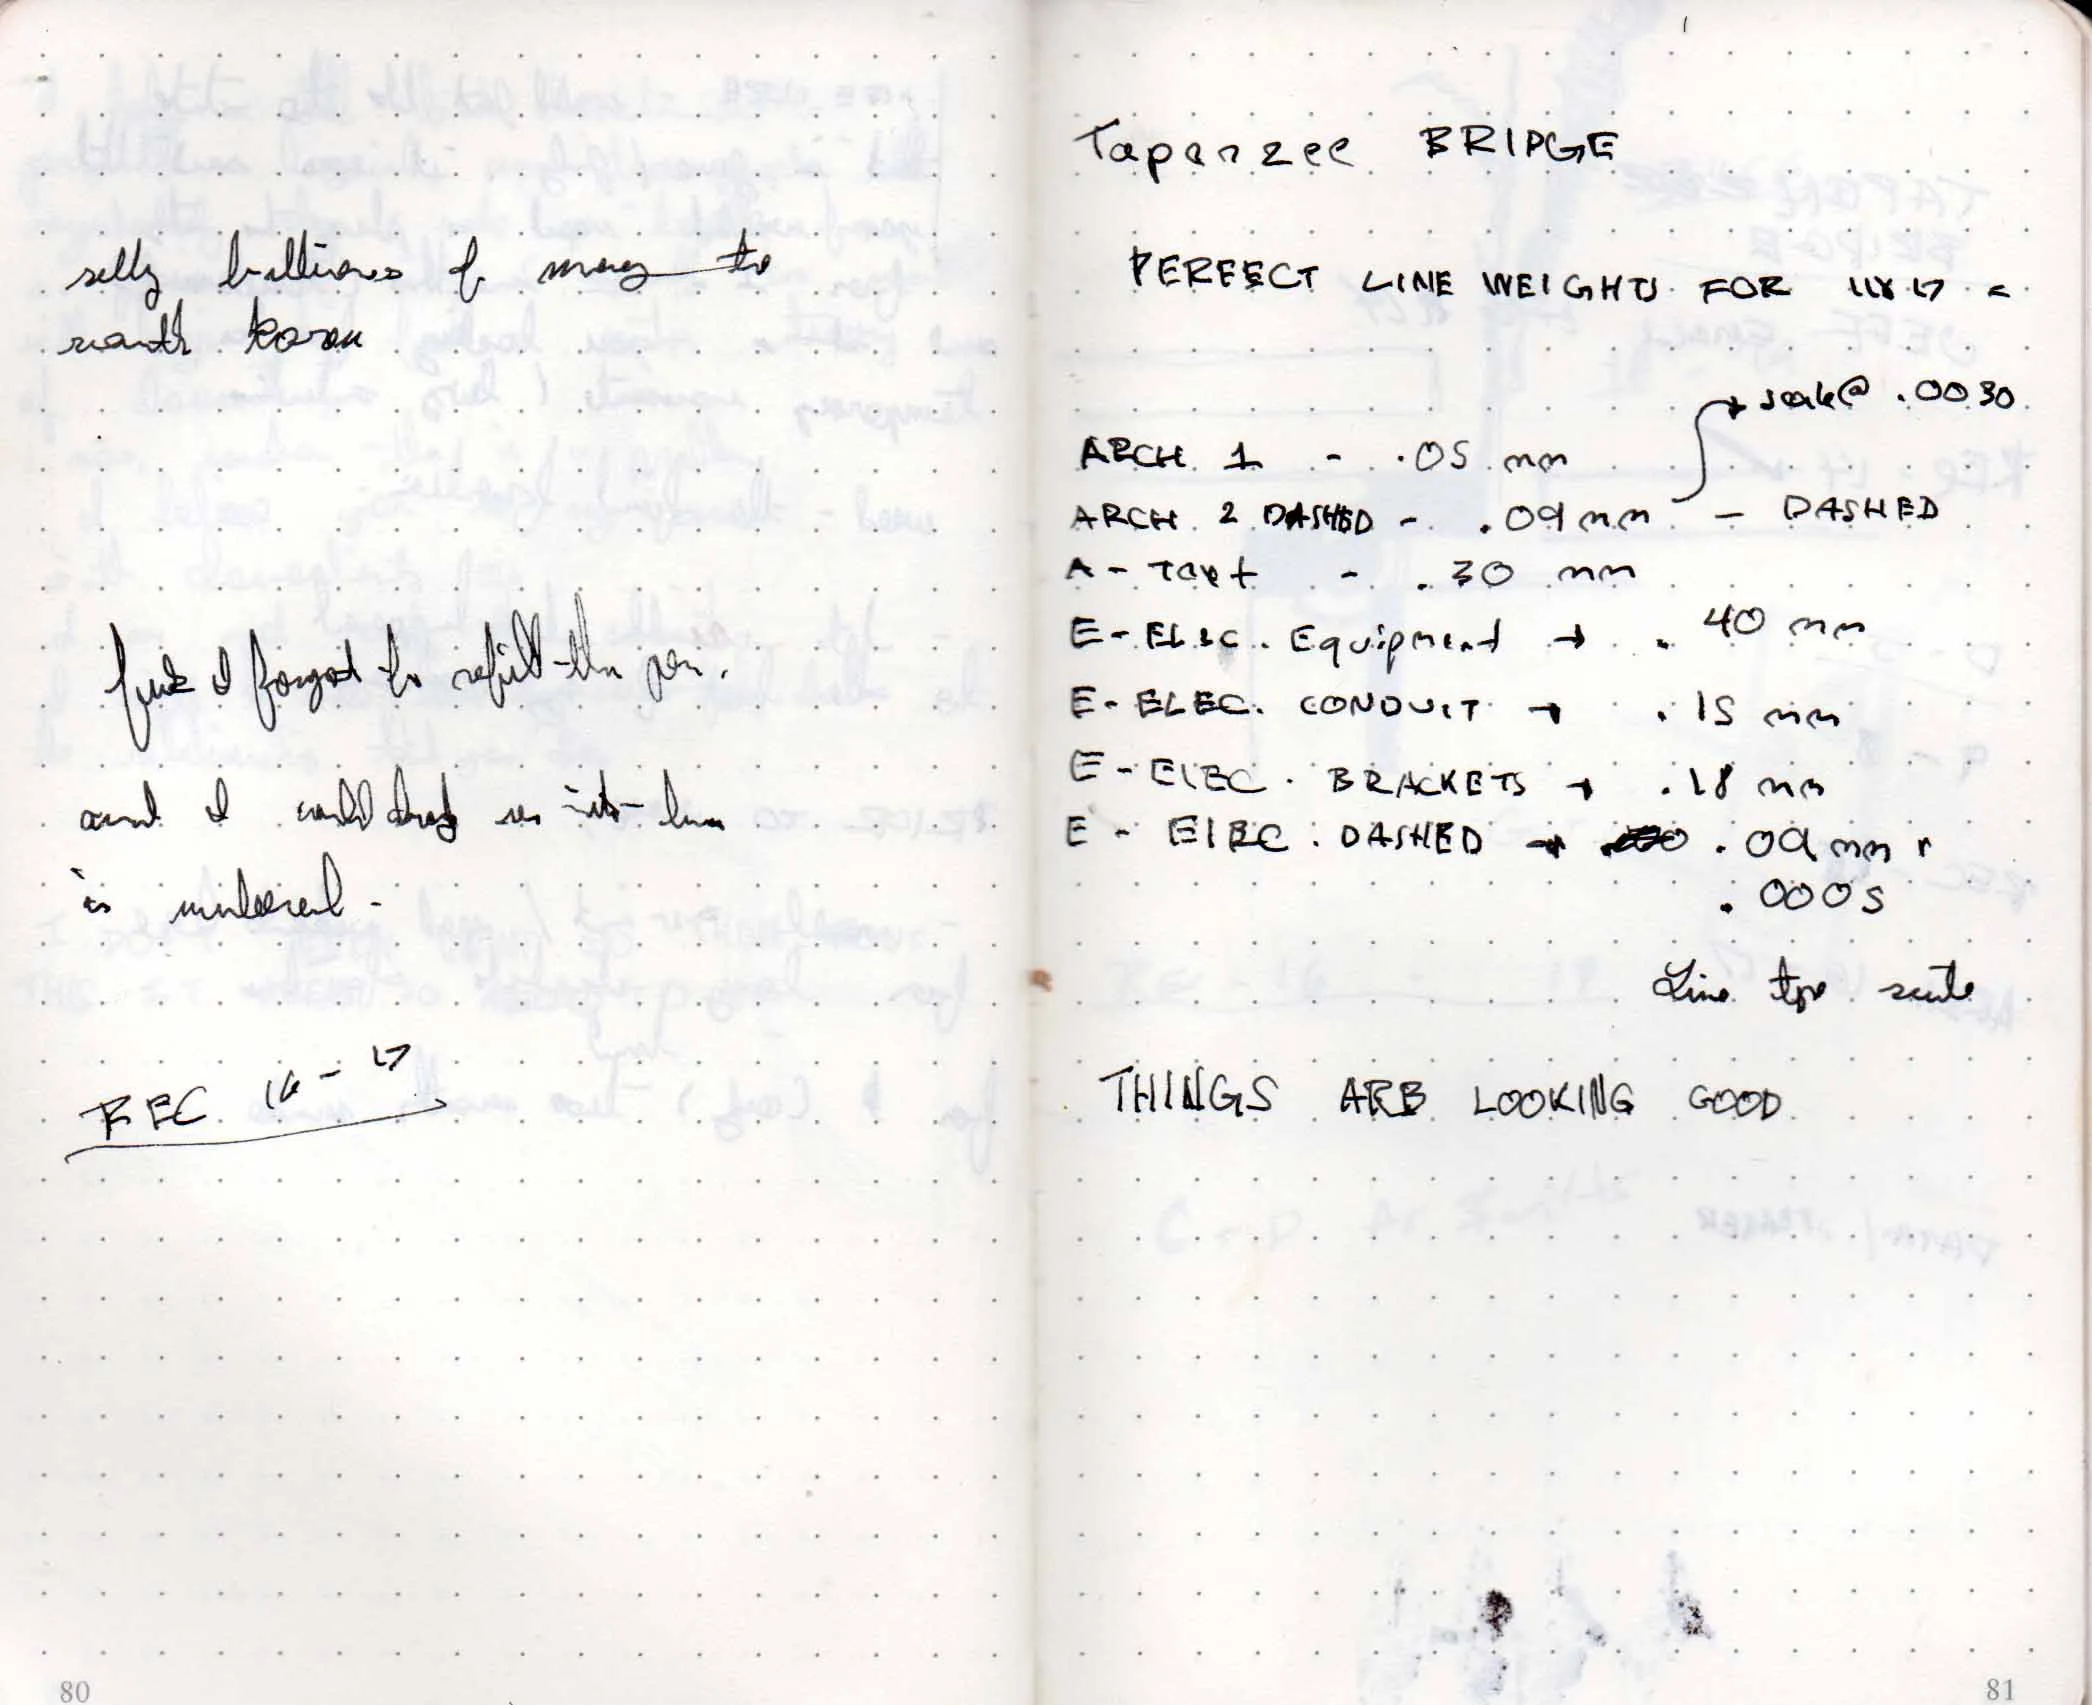 selly billions of money to
south korea
fuck I forgot to refill the pen.
and I
is
REC 16-17
80
Tapanzee BRIDGE
PERFECT LINE WEIGHTS FOR 11X17 =
scale@ .0030
ARCH 1 - .05 mm
ARCH 2 DASHED - .09mm - DASHED
A-Text - .30 mm
E-Elec. Equipment → .40 mm
E-ELEC. CONDUIT → .15 mm
E-ElEC. BRACKETS → .18 mm
E-ElEC. DASHED → .09mm
.0005
Line type scale
THINGS ARE LOOKING GOOD
81